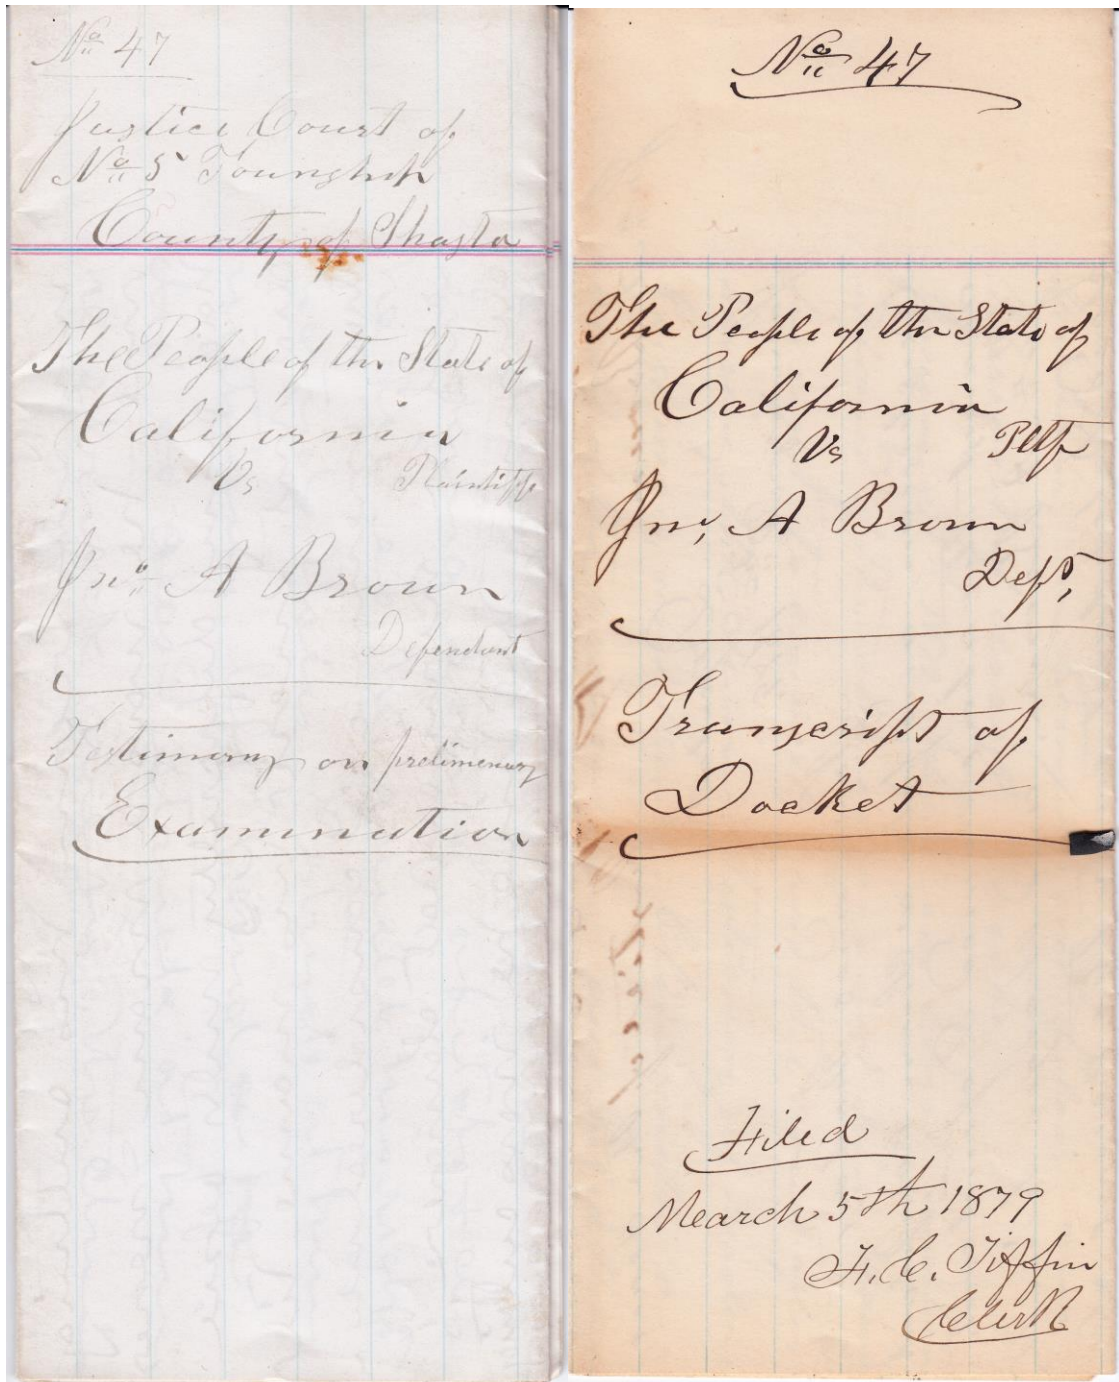 No 47
Justice Court of
No 5 Township
County of Shasta
The People of the State of
California
Vs Plaintiff
Jno A Brown
Defendant
Testimony on prelimenary
Examination
No 47
The People of the State of
California
Vs Pltf
Jno, A Brown
Deft,
Transcript of
Docket
Filed
March 5th 1879
F. C. Tiffin
Clerk